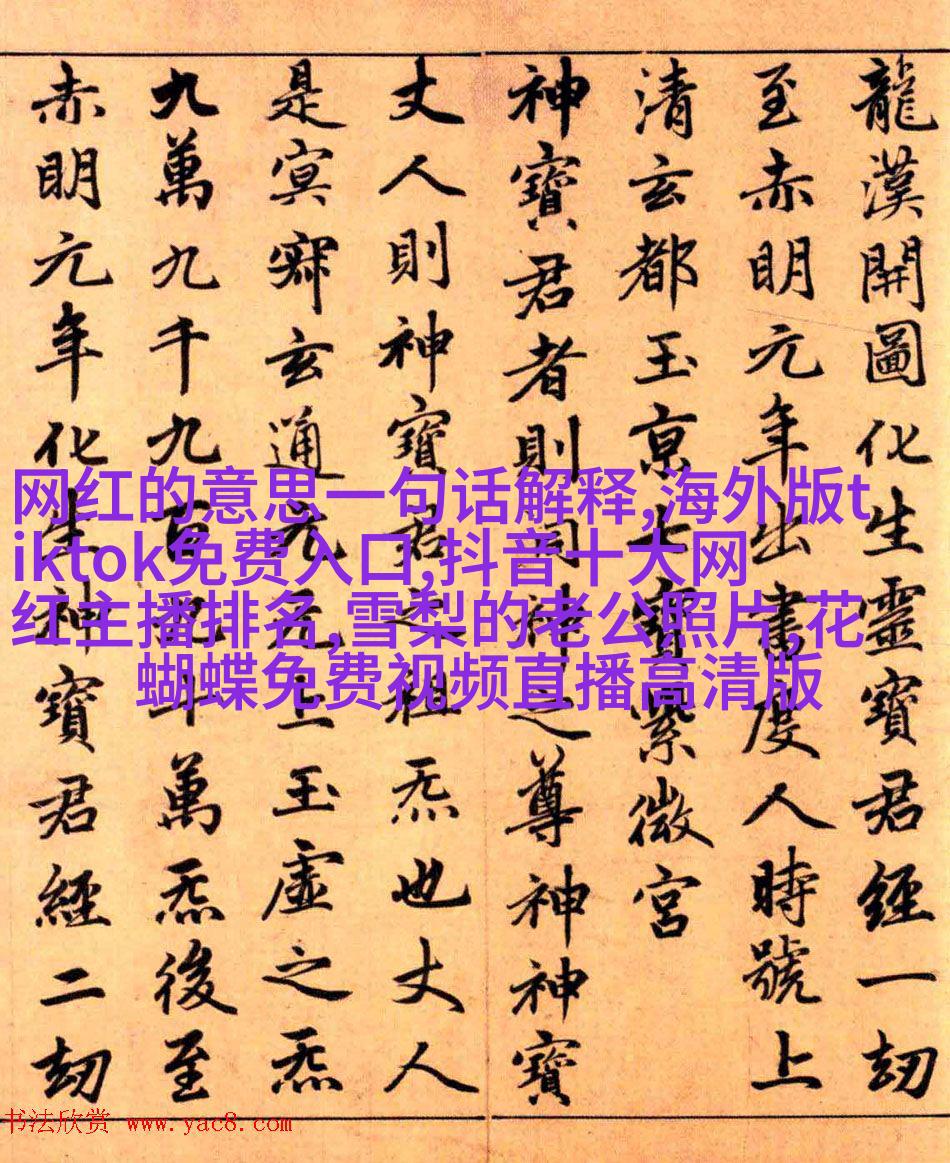 龍漢開圖化生靈寶君經一劫
至赤明元年出書度人時號上
清玄都玉京七寶紫微宮
神寶君者則洞神之尊神神寶
丈人則神寶君之祖炁也丈人
是冥寂玄通元无上玉虛之炁
九萬九千九百九十萬炁後至
赤明元年化生神寶君經二劫
网红的意思一句话解释,海外版t
iktok免费入口,抖音十大网
红主播排名,雪梨的老公照片,花
蝴蝶免费视频直播高清版
书法欣赏 www.yac8.com